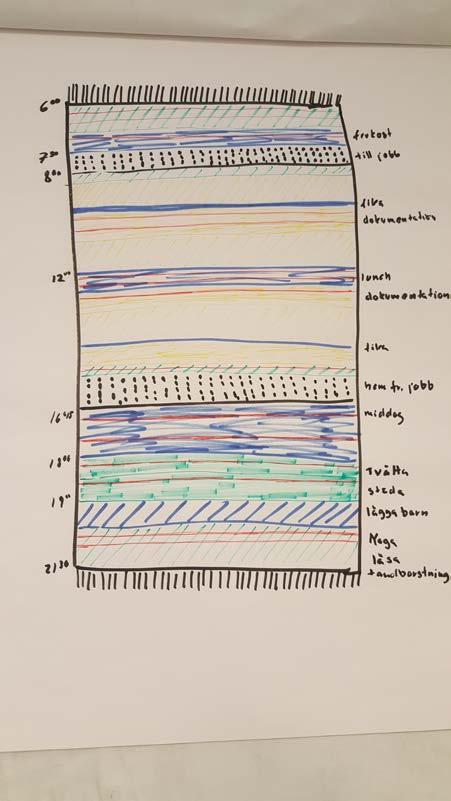 6⁰⁰
frukost
7³⁰ till jobb
8⁰⁰
fika
dokumentation
12⁰⁰ lunch
dokumentation
fika
hem fr. jobb
16⁴⁵ middag
18⁰⁰
Tvätta
städa
19⁰⁰ lägga barn
Yoga
läsa
21³⁰ tandborstning